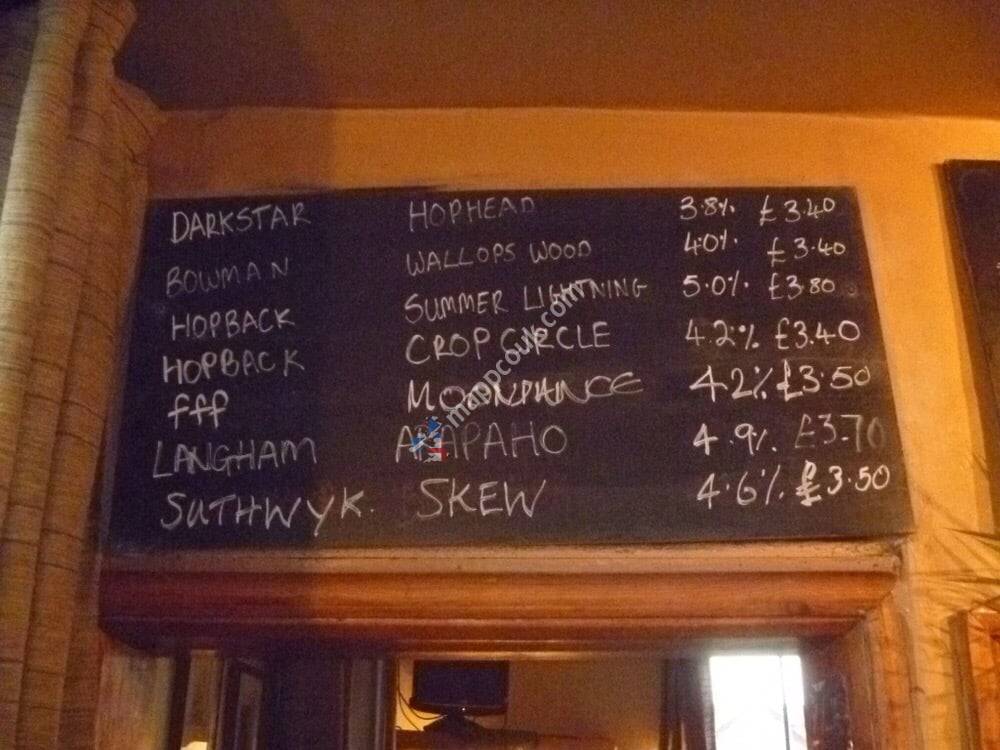 DARKSTAR HOPHEAD 3.8% £3.40
BOWMAN WALLOPS WOOD 4.0% £3.40
HOPBACK SUMMER LIGHTNING 5.0% £3.80
HOPBACK CROP CIRCLE 4.2% £3.40
fff MOONDANCE 4.2% £3.50
LANGHAM ARAPAHO 4.9% £3.70
SUTHWYK. SKEW 4.6% £3.50
mappcouk.com